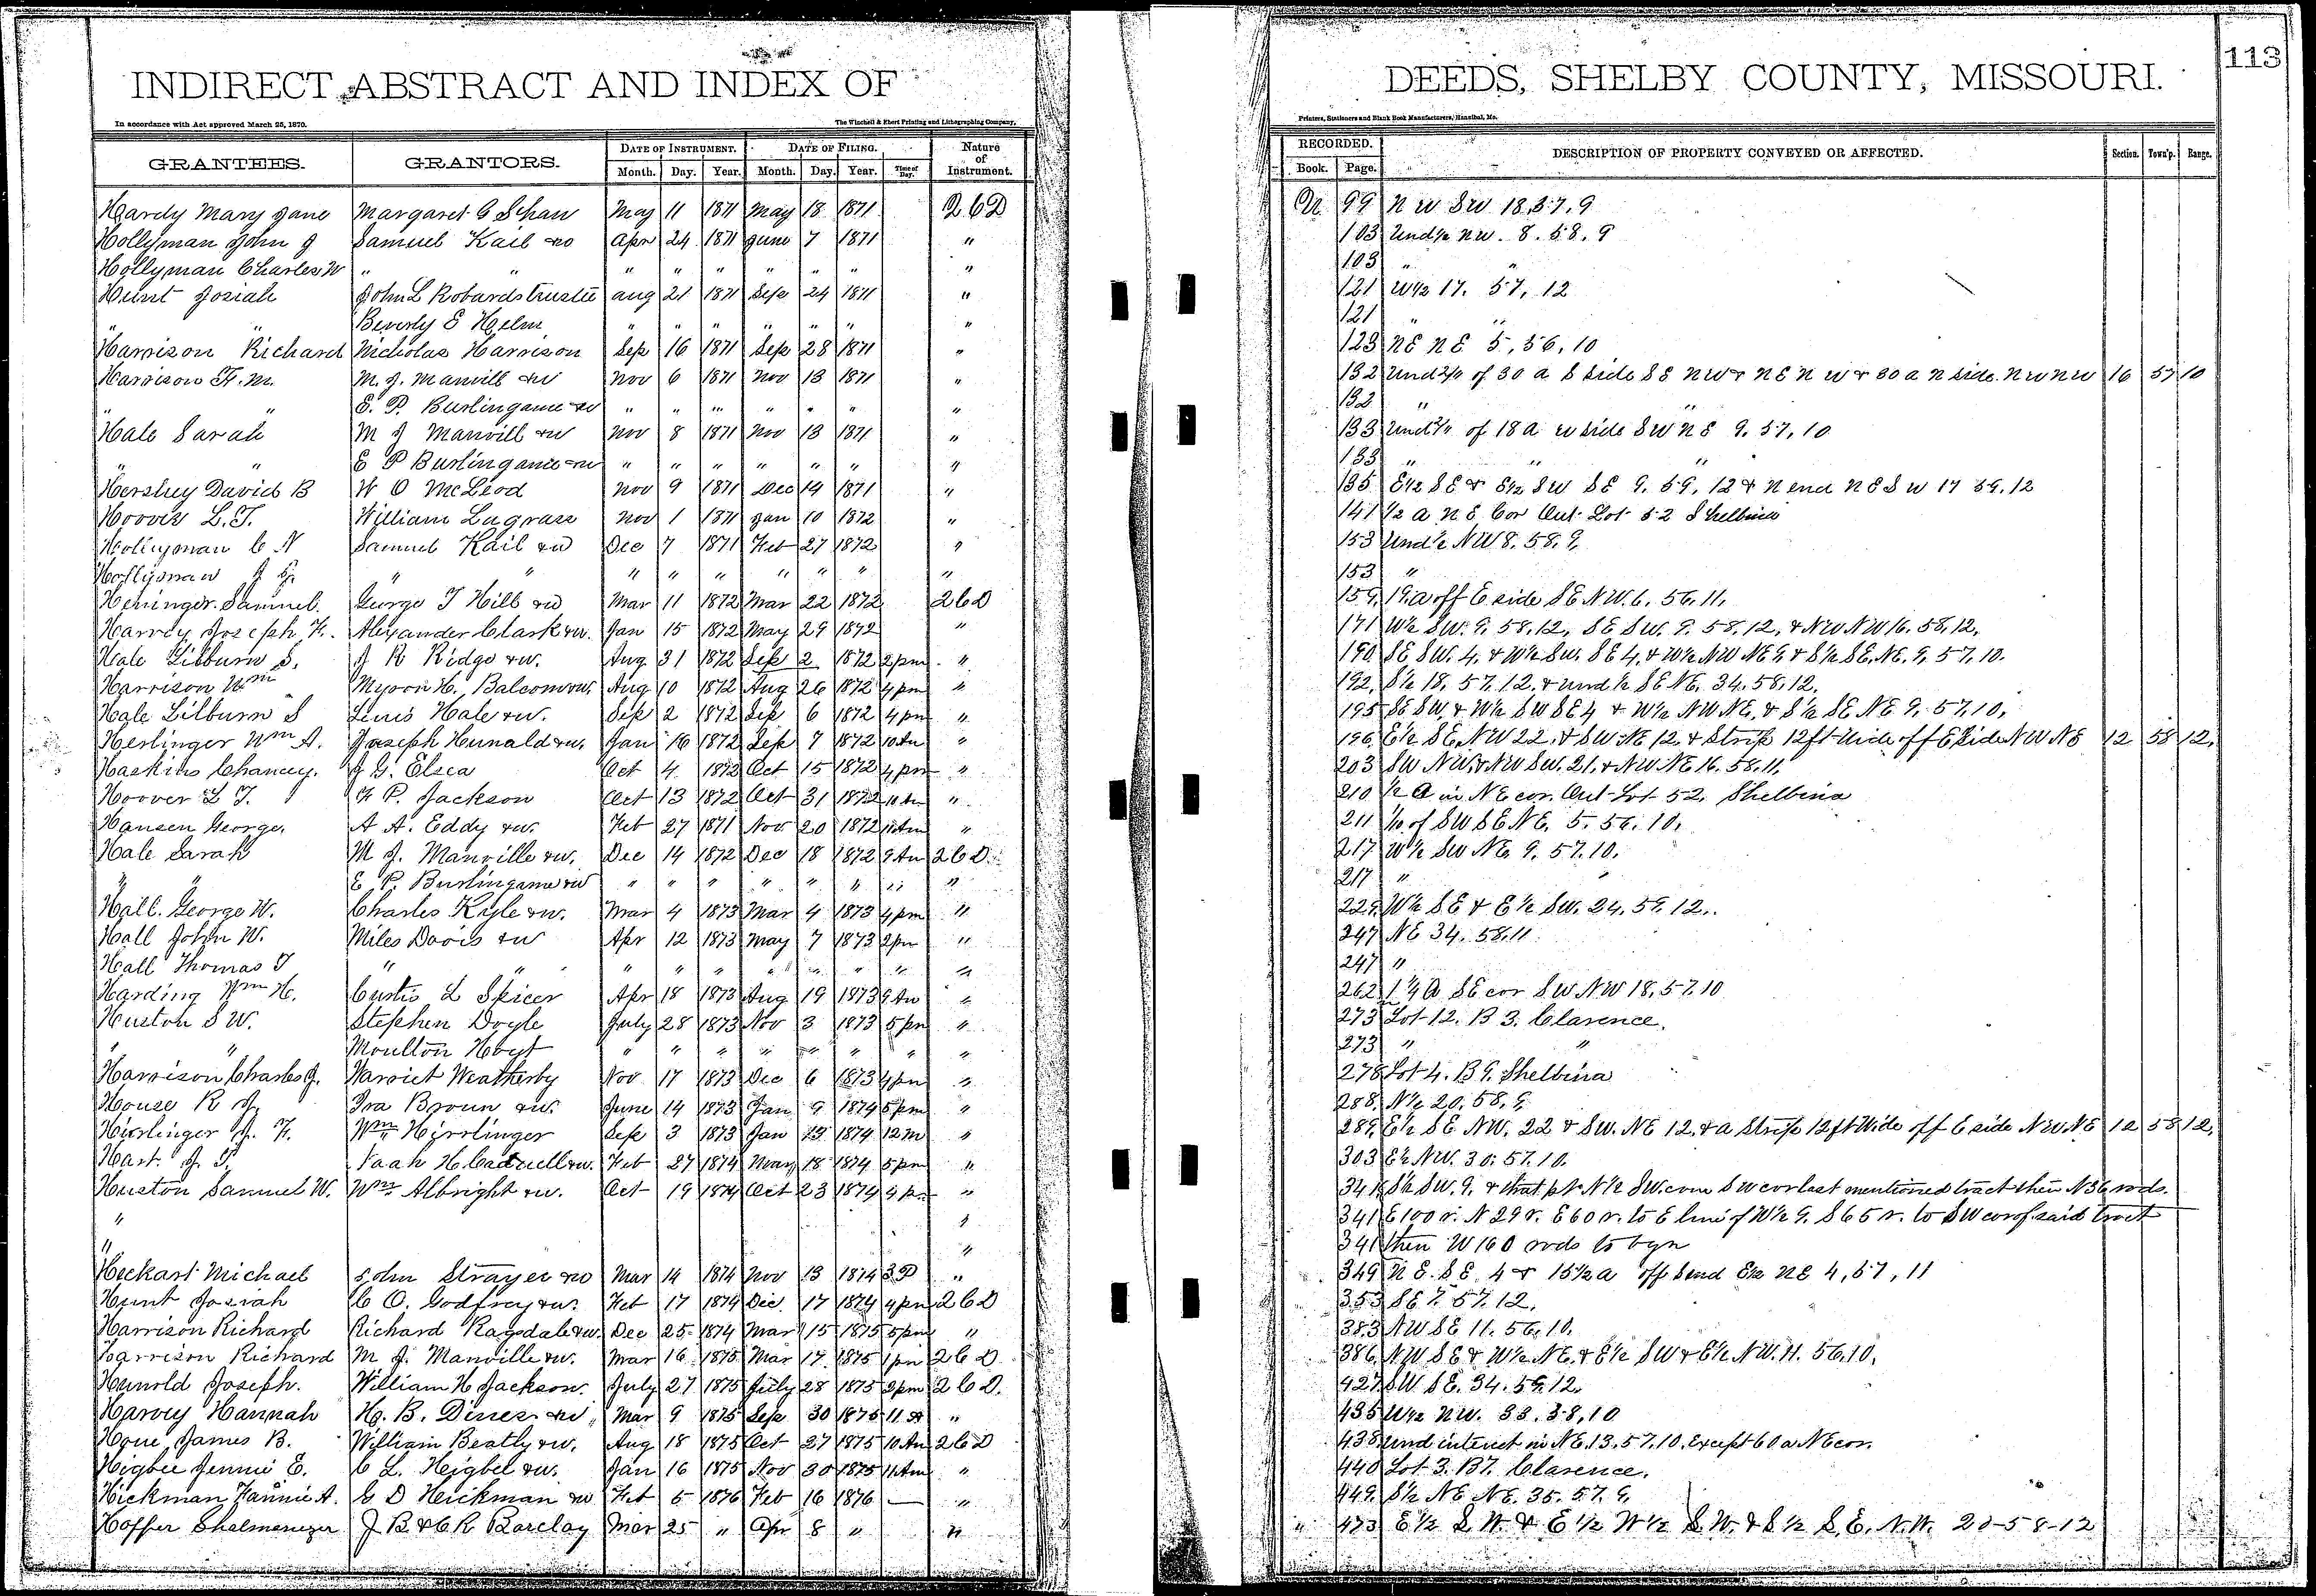 113
INDIRECT ABSTRACT AND INDEX OF DEEDS, SHELBY COUNTY, MISSOURI.
In accordance with Act approved March 25, 1870. The Winchell & Ebert Printing and Lithographing Company, Printers, Stationers and Blank Book Manufacturers, Hannibal, Mo.
GRANTEES. GRANTORS. DATE OF INSTRUMENT. DATE OF FILING. Nature of Instrument. RECORDED. DESCRIPTION OF PROPERTY CONVEYED OR AFFECTED. Section. Town'p. Range.
Month. Day. Year. Month. Day. Year. Time of Day. Book. Page.
Hardy Mary Jane Margaret G Schau May 11 1871 May 18 1871 Q C D 99 N W SW 18, 57, 9
Hollyman John J Samuel Kail &w Apr 24 1871 June 7 1871 " 103 Und ½ NW. 8. 58. 9
Hollyman Charles W " " " " " " " " " 103 " "
Hunt Josiah John L Robards trustee Aug 21 1871 Sep 24 1871 " 121 W½ 17. 57, 12
" " Beverly E Helm " " " " " " " 121 " "
Harrison Richard Nicholas Harrison Sep 16 1871 Sep 28 1871 " 123 NE NE 5, 56, 10
Harrison F. M. M. J. Manvill &w Nov 6 1871 Nov 13 1871 " 132 Und of 30 a S side SE NW & NE NW & 30 a N side NW NW 16 57 10
" " E. P. Burlingame &w " " " " " " " 132 " "
Hale Sarah M J Manvill &w Nov 8 1871 Nov 13 1871 " 133 Und of 18 a W side SW NE 9. 57, 10
" " E P Burlingame &w " " " " " " " 133 " " "
Hershey David B W O McLeod Nov 9 1871 Dec 14 1871 " 135 E½ SE & E½ SW SE 9. 59, 12 & N end NE SW 17 59. 12
Hoover L. T. William Lagrass Nov 1 1871 Jan 10 1872 " 141 ½ a NE Cor Out Lot 52 Shelbina
Hollyman C N Samuel Kail &w Dec 7 1871 Feb 27 1872 " 153 Und ½ NW 8. 58. 9
Hollyman J G " " " " " " " " " 153 "
Heninger Samuel. George T Hill &w Mar 11 1872 Mar 22 1872 Q C D 159 19 a off E side SE NW. 6. 56. 11.
Harvey Joseph F. Alexander Clark &w. Jan 15 1872 May 29 1872 " 171 W½ SW. 9. 58. 12, SE SW. 9. 58. 12, & NW NW 16. 58. 12.
Hale Lilburn S. J R Ridge &w. Aug 31 1872 Sep 2 1872 2 pm " 190 SE SW. 4. & W½ SW. SE 4. & W½ NW NE 9 & S½ SE. NE. 9. 57. 10.
Harrison Wm Myron H. Balcom &w. Aug 10 1872 Aug 26 1872 4 pm " 192 S½ 18. 57. 12. & und ½ SE NE. 34. 58. 12.
Hale Lilburn S Lewis Hale &w. Sep 2 1872 Sep 6 1872 4 pm " 195 SE SW. & W½ SW SE 4 & W½ NW NE. & S½ SE NE 9. 57. 10.
Herlinger Wm A. Joseph Hunald &w. Jan 16 1872 Sep 7 1872 10 Am " 196 E½ SE. NW 22. & SW. NE 12. & Strip 12 ft Wide off E Side NW NE 12 58 12.
Haskins Chancey. J G. Elsea Oct 4 1872 Oct 15 1872 4 pm " 203 SW NW. & NW SW. 21. & NW NE 16. 58. 11.
Hoover L T. F P. Jackson Oct 13 1872 Oct 31 1872 10 Am " 210 ½ A in NE cor. Out Lot 52. Shelbina
Hansen George. A A. Eddy &w. Feb 27 1871 Nov 20 1872 11 Am " 211 1/10 of SW SE NE. 5. 56. 10.
Hale Sarah M J. Manville &w. Dec 14 1872 Dec 18 1872 9 Am Q C D. 217 W½ SW NE. 9. 57. 10.
" " E P. Burlingame &w " " " " " " " " 217 " "
Hall. George W. Charles Kyle &w. Mar 4 1873 Mar 4 1873 4 pm " 229 W½ SE & E½ SW. 24. 59. 12.
Hall John W. Miles Davis &w Apr 12 1873 May 7 1873 2 pm " 247 NE 34. 58. 11
Hall Thomas J " " " " " " " " " " 247 "
Harding Wm H. Curtis L Spicer Apr 18 1873 Aug 19 1873 9 Am " 262 1¼ A SE cor SW NW 18. 57. 10
Huston S W. Stephen Doyle July 28 1873 Nov 3 1873 5 pm " 273 Lot 12. B 3. Clarence.
" " Moulton Hoyt " " " " " " " " 273 " "
Harrison Charles J. Harriet Weatherby Nov 17 1873 Dec 6 1873 4 pm " 278 Lot 4. B 9. Shelbina
House R J. Ira Broun &w. June 14 1873 Jan 9 1874 5 pm " 288 N½ 20. 58. 9
Hirlinger J. F. Wm Hirrlinger Sep 3 1873 Jan 13 1874 12 m " 289 E½ SE NW. 22 & SW. NE 12. & a Strip 12 ft Wide off E side NW NE 12 58 12.
Hart. J T. Noah H. Cadwell &w. Feb 27 1874 May 18 1874 5 pm " 303 E½ NW. 30. 57. 10.
Huston Samuel W. Wm Albright &w. Oct 19 1874 Oct 23 1874 4 pm " 341 S½ SW. 9. & that pt N½ SW. com SW cor last mentioned tract then N 36 rods.
" " 341 E 100 r. N 29 r. E 60 r. to E line of W½ 9. S 65 r. to SW cor of said tract
" " 341 then W 160 rods to bgn
Heckart Michael John Strayer &w Mar 14 1874 Nov 13 1874 3 P " 349 NE. SE. 4 & 15½ a off S end E½ NE 4, 57, 11
Hunt Josiah C O. Godfrey &w. Feb 17 1874 Dec. 17 1874 4 pm Q C D 353 SE 7. 57. 12.
Harrison Richard Richard Ragsdale &w. Dec 25 1874 Mar 15 1875 5 pm " 383 NW SE 11. 56. 10.
Harrison Richard M J. Manville &w. Mar 16 1875 Mar 17 1875 1 pm Q C D 386 NW SE & W½ NE. & E½ SW & E½ NW. 11. 56. 10.
Hunold Joseph. William H Jackson. July 27 1875 July 28 1875 2 pm Q C D. 427 SW SE. 34. 59. 12.
Harvey Hannah H. B. Dines &w Mar 9 1875 Sep 30 1875 11 A " 435 W½ NW. 33. 58, 10
Houe James B. William Beatty &w. Aug 18 1875 Oct 27 1875 10 Am Q C D 438 Und interest in NE. 13. 57. 10. Except 60 a NE cor.
Higbee Jennie E. C L. Heigbel &w. Jan 16 1875 Nov 30 1875 11 Am " 440 Lot 3. B 7. Clarence.
Hickman Fannie A. C D Hickman &w Feb 5 1876 Feb 16 1876 — " 449 S½ NE NE. 35. 57. 9.
Hoffer Shalmenezer J B & C R Barclay Mar 25 " Apr 8 " " " 473 E½ S. W. & E½ W½ S. W. & S½ S. E. N. W. 20-58-12